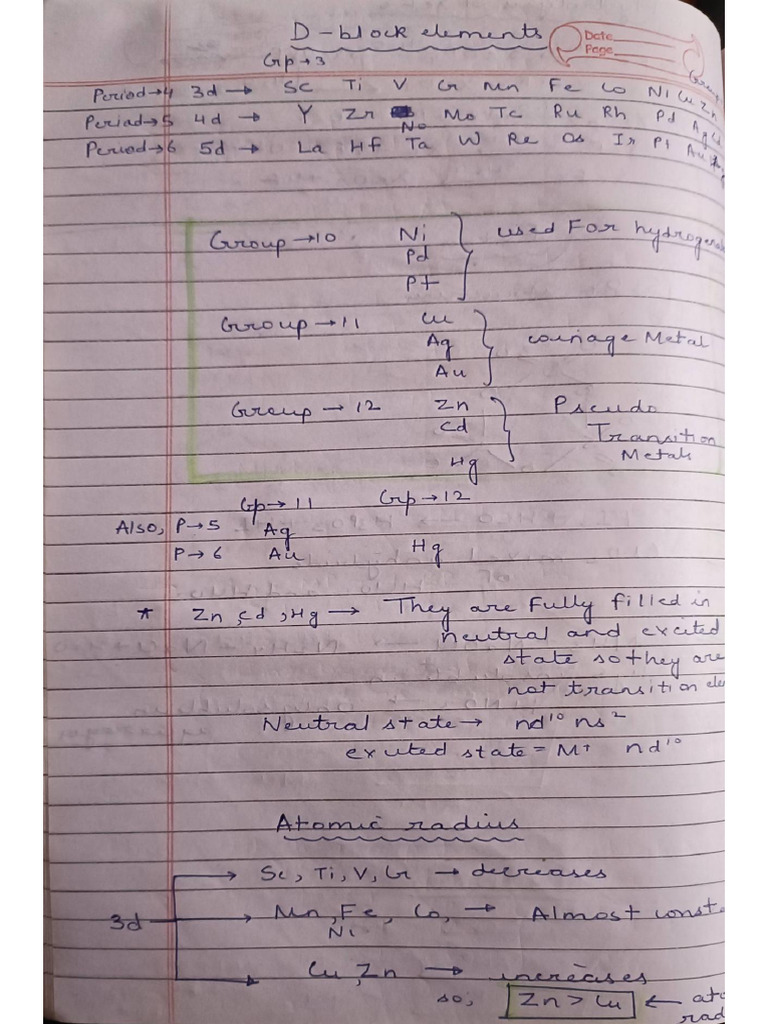 D-block elements
Date
Page
Gp→3
Group
Period→4 3d → Sc Ti V Cr Mn Fe Co Ni Cu Zn
Period→5 4d → Y Zr No Mo Tc Ru Rh Pd Ag Cd
Period→6 5d → La Hf Ta W Re Os Ir Pt Au
Group→10 Ni used For hydrogena
Pd
Pt
Group→11 Cu
Ag couinage Metal
Au
Group→12 Zn Pseudo
Cd Transition
Hg Metals
Gp→11 Grp→12
Also, P→5 Ag
P→6 Au Hg
* Zn, Cd, Hg → They are Fully filled in
neutral and excited
state so they are
not transition ele
Neutral state → nd¹⁰ ns²
exuted state = M+ nd¹⁰
Atomic radius
Sc, Ti, V, Cr → decreases
3d Mn, Fe, Co, → Almost const
Ni
Cu, Zn → increases
so, Zn > Cu ← ato
rad